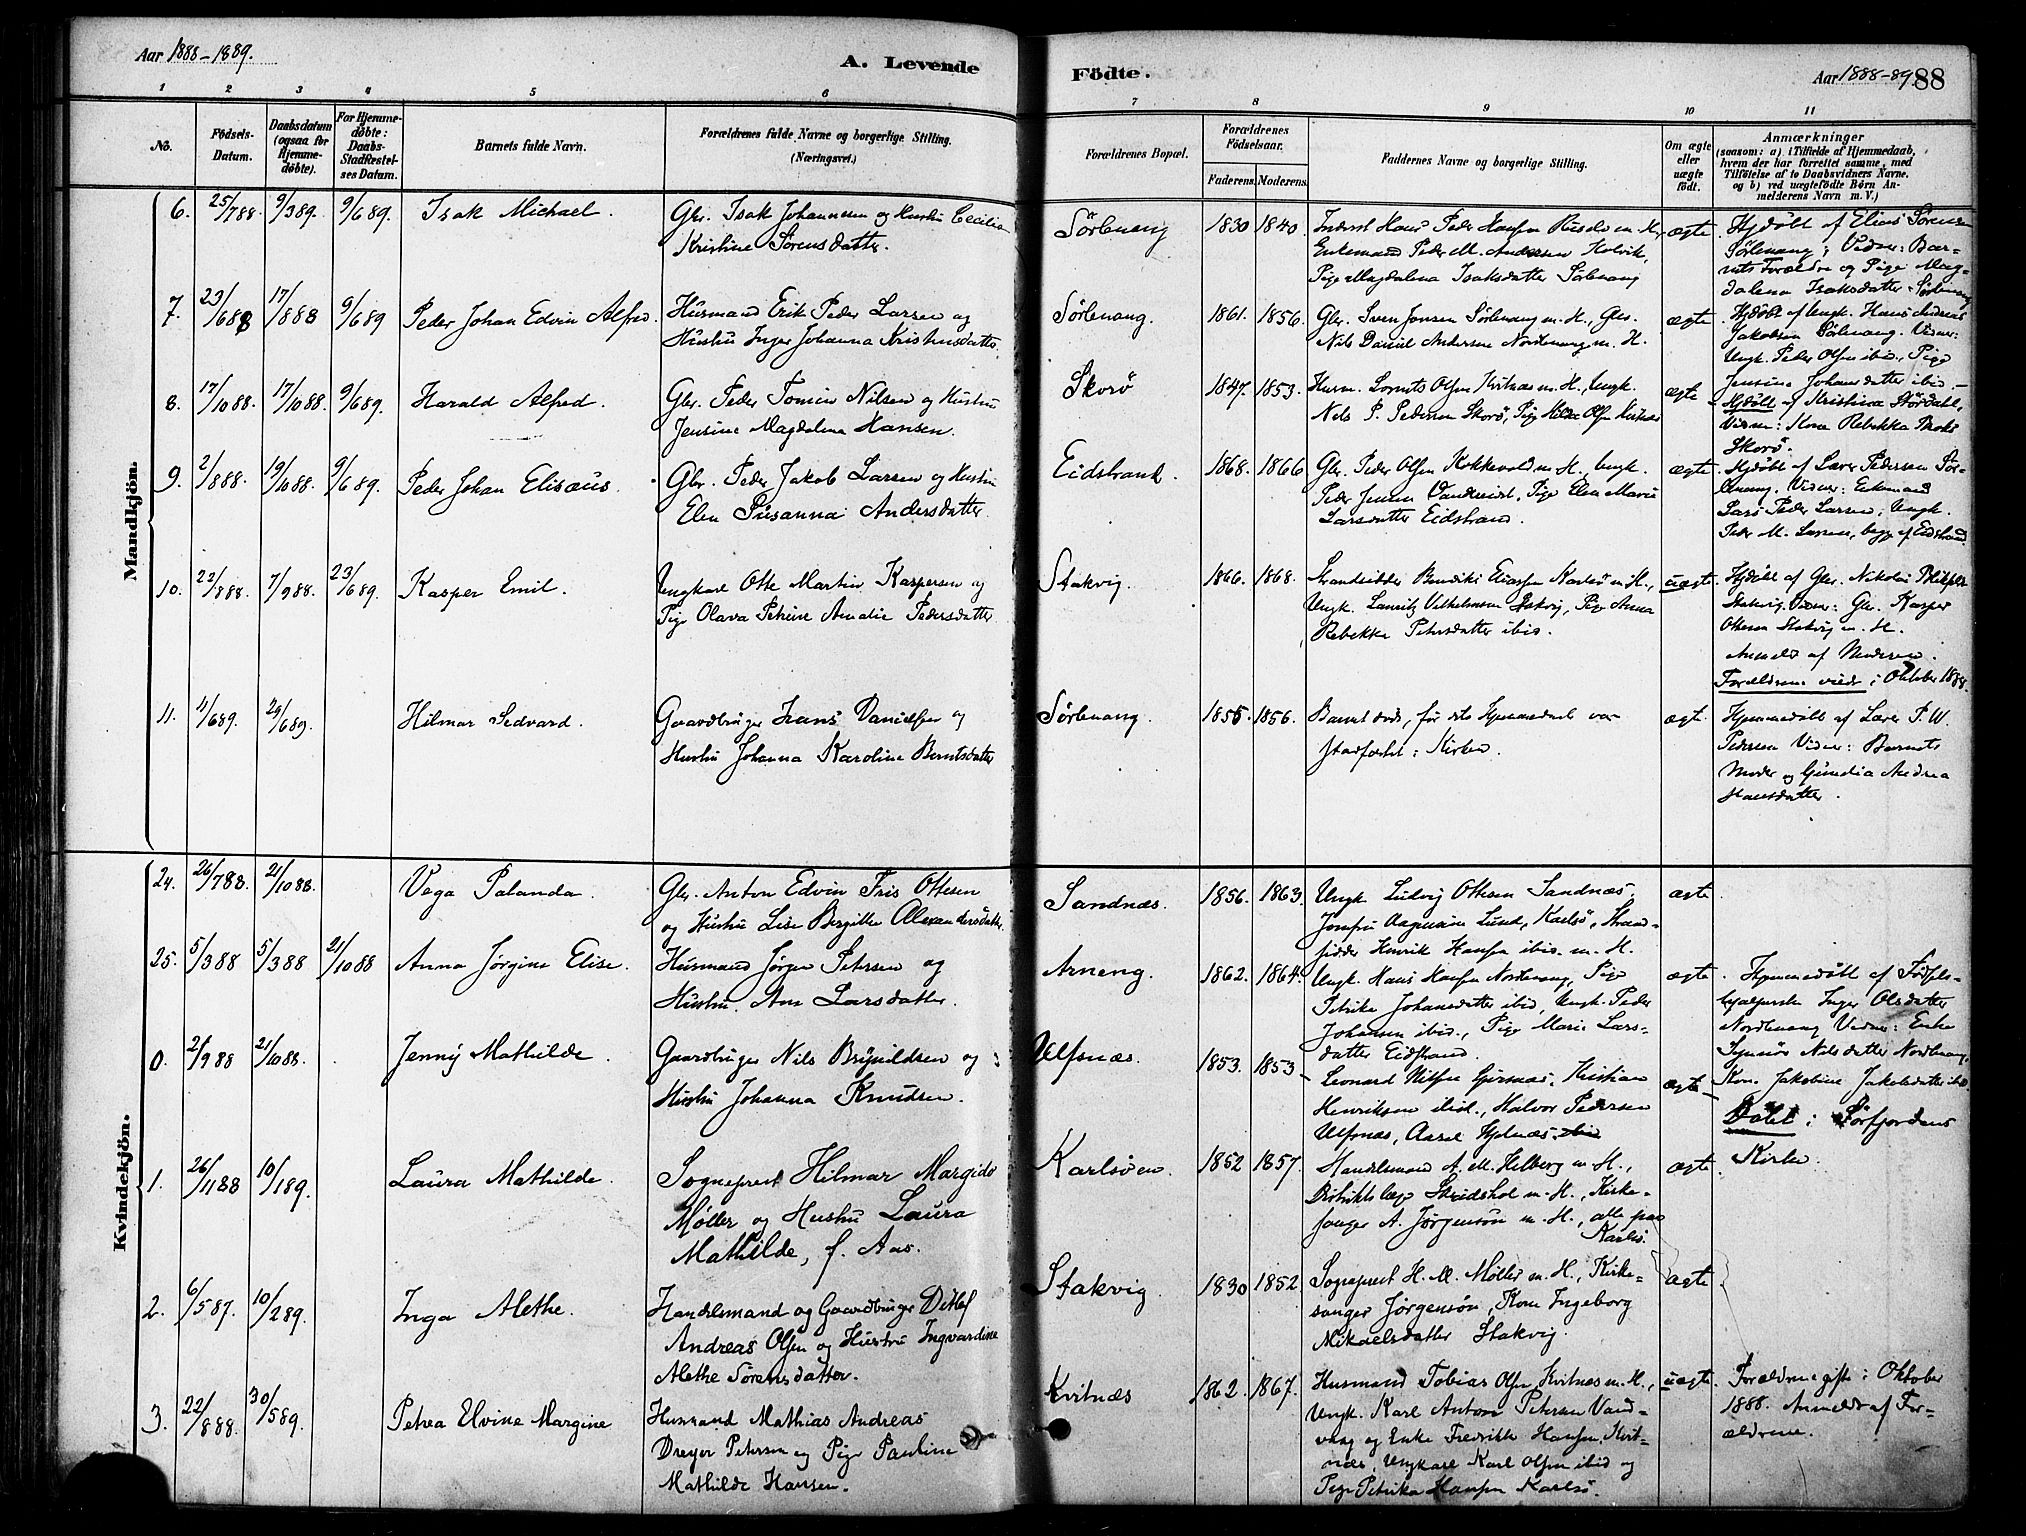 Aar 1888-1889.
A. Levende
Födte.
Aar 1888-89
88
1 2 3 4 5 6 7 8 9 10 11
No.
Födsels-Datum.
Daabsdatum (ogsaa for Hjemmedöbte).
For Hjemmedöbte: Daabs-Stadfæstelses Datum.
Barnets fulde Navn.
Forældrenes fulde Navne og borgerlige Stilling.
(Næringsvei.)
Forældrenes Bopæl.
Forældrenes Födselsaar.
Faderens. Moderens.
Faddernes Navne og borgerlige Stilling.
Om ægte eller uægte födt.
Anmærkninger
(saasom: a) i Tilfælde af Hjemmedaab,
hvem der har forrettet samme, med
Tilföielse af to Daabsvidners Navne.
og b) ved uægtefödte Börn Anmelderens Navn m. V.)
Mandkjön.
6. 25/788. 9/389. 9/689. Isak Michael.
Gbr. Isak Johannesen og Hustru Cecilia
Kristine Sörensdatter.
Sörlenang 1830 1840.
Enkemand Peder M. Andersen
Pige Magdalena Isaksdatter Sörlenang
ægte
Hjdöbt af Elias Sörensen
Sörlenang; Vidner: Bar-
nets Forældre og Pige Mag-
dalena Isaksdatter Sörlenang
7. 23/688 17/888 9/689 Peder Johan Edvin Alfred.
Husmand Erik Peder Larsen og
Hustru Inger Johanna Kristiansdatter.
Sörlenang. 1861. 1856.
Gbr. Sven Jensen Sörlenang m. H., Gbr.
Nils Daniel Andersen Nordlenang m. H.
ægte
Hjdöbt af Ungk. Hans Andreas
Jakobsen Sörlenang. Vidner:
Ungk. Peder Olsen ibid., Pige
Jensine Johansdatter ibid.
8. 17/1088. 17/1088. 9/689. Harald Alfred.
Gbr. Peder Tomin Nilsen og Hustru
Jensine Magdalena Hansen.
Skorö 1847. 1853.
Husm. Lorents Olsen Kvitnæs m. H., Ungk.
Nils P. Pedersen Skorö, Pige Hilda Olsen Kvitnæs
ægte
Hjdöbt af Kristina Stördahl,
Vidner: Kone Rebekka
Skorö.
9. 2/888. 19/1088. 9/689. Peder Johan Elisæus.
Gbr. Peder Jakob Larsen og Hustru
Elen Susanna Andersdatter.
Eidstrand. 1868. 1866
Gbr. Peder Olsen Kokkevold m. H., Ungk.
Peder Jensen Vandveid, Pige Elen Marie
Larsdatter Eidstrand.
ægte
Hjdöbt af Lærer Pedersen Sör-
lenang. Vidner: Enkemand
Lars Peder Larsen, Ungk.
Peder M. Larsen, begge af Eidstrand.
10. 22/888. 7/988. 23/689. Kasper Emil.
Ungkarl Otte Martin Kaspersen og
Pige Olava Petrine Amalie Pedersdatter
Stakvig. 1866. 1868.
Strandsidder Bendiks Eliassen Karlsö m. H.,
Ungk. Lauritz Vilhelmsen Stakvig, Pige Anna
Rebekka Petersdatter ibid.
uægte
Hjdöbt af Gbr. Nikolai
Stakvig. Vidner: Gbr. Kasper
Ottesen Stakvig m. H.
Anmeldt af Moderen.
Forældrene viede i Oktober 1888.
11. 11/689. 29/689. Hilmar Sedvard.
Gaardbruger Hans Danielsen og
Hustru Johanna Karoline Berntsdatter
Sörlenang. 1855 1856.
Barnet döde, för dets Hjemmedaab var
stadfæstet i Kirken.
ægte.
Hjemmedöbt af Lærer P. W.
Pedersen Vidner: Barnets
Moder og Gundia Andrea
Hansdatter.
Kvindekjön.
24. 26/788. 21/1088. Vega Palanda.
Gbr. Anton Edvin Friis Ottesen
og Hustru Lise Bergitte Alexandersdatter.
Sandnæs. 1856. 1863.
Ungk. Ludvig Ottesen Sandnæs,
Jomfru Aagusine Lund, Karlsö, Strand-
sidder Henrik Hansen ibid. m. H.
ægte
25. 5/388 5/388 21/1088 Anna Jörgine Elise.
Husmand Jörgen Petersen og
Hustru Ane Larsdatter.
Arneng. 1862. 1864.
Ungk. Hans Hansen Nordlenang, Pige
Petrike Johansdatter ibid, Ungk. Peder
Johansen ibid., Pige Marie Lars-
datter Eidstrand.
ægte
Hjemmedöbt af Födsels-
hjælperske Inger Olsdatter
Nordlenang Vidner: Enke
Synnöv Nilsdatter Nordlenang,
Kone Jakobine Jakobsdatter ibid
0. 2/988 21/1088. Jenny Mathilde.
Gaardbruger Nils Brynildsen og
Hustru Johanna Knudsen.
Ulfsnæs. 1853. 1853
Leonard Nilsen Gjøsnæs, Kristian
Henriksen ibid., Halvor Pedersen
Ulfsnæs, Aasel Hjelnæs ibid
ægte
Döbt i Sörfjordens
Kirke.
1. 26/1188 10/189. Laura Mathilde.
Sogneprest Hilmar Margido
Møller og Hustru Laura
Mathilde, f. Aas.
Karlsöen. 1852 1857.
Handelsmand A. M. Helberg m. H.,
Distriktslæge Stridshol m. H., Kirke-
sanger A. Jørgensøn m. H., alle paa
Karlsö.
ægte
2. 6/587. 10/289. Inga Alethe.
Handelsmand og Gaardbruger Detlef
Andreas Olsen og Hustru Ingvardine
Alethe Sörensdatter.
Stakvig 1830 1852.
Sogneprest H. M. Møller m. H., Kirke-
sanger Jørgensøn, Kone Ingeborg
Mikaelsdatter Stakvig.
ægte
3. 22/888. 30/589. Petra Elvine Margine
Husmand Mathias Andreas
Dreyer Petersen og Pige Pauline
Mathilde Hansen.
Kvitnæs 1862. 1867.
Husmand Tobias Olsen Kvitnæs m. H.,
Ungk. Karl Anton Petersen Vand-
vaag og Enke Fredrikke Hansen Kvit-
næs, Ungkarl Karl Olsen ibid og
Pige Petrika Hansen Karlsö.
uægte
Forældrene gifte i Oktober
1888. Anmeldt af For-
ældrene.